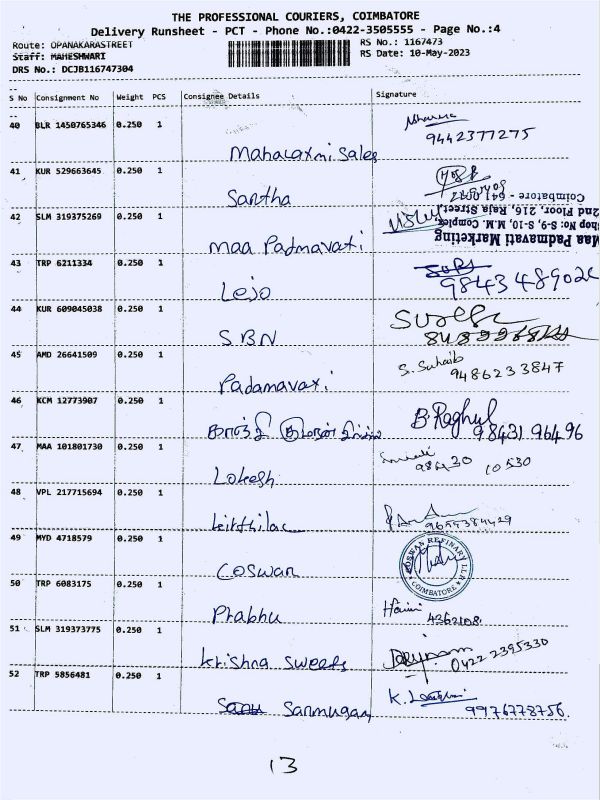 THE PROFESSIONAL COURIERS, COIMBATORE
Delivery Runsheet - PCT - Phone No.:0422-3505555 - Page No.:4
Route: OPANAKARASTREET RS No.: 1167473
Staff: MAHESHWARI RS Date: 10-May-2023
DRS No.: DCJB116747304
S No Consignment No Weight PCS Consignee Details Signature
40 BLR 1450765346 0.250 1
Mahalaxmi Sales 9442377275
41 KUR 529663645 0.250 1
Santha
42 SLM 319375269 0.250 1
Maa Padmavati
Maa Padmavati Marketing
Shop No: S-9, S-10, M.M. Complex,
2nd Floor, 216, Raja Street,
Coimbatore - 641
43 TRP 6211334 0.250 1
Lejo
44 KUR 609045038 0.250 1
SBN
45 AMD 26641509 0.250 1
S. Suhaib
Padamavati 9486233847
46 KCM 12773907 0.250 1
B. Raghul
98431 96496
47 MAA 101801730 0.250 1
Lokesh 10530
48 VPL 217715694 0.250 1
49 MYD 4718579 0.250 1
Coswan
COSWAN REFINARY LLP
COIMBATORE
50 TRP 6083175 0.250 1
Prabhu 4362108
51 SLM 319373775 0.250 1
Krishna Sweets 0422 2395330
52 TRP 5856481 0.250 1
Sanmugam 9976778756
13